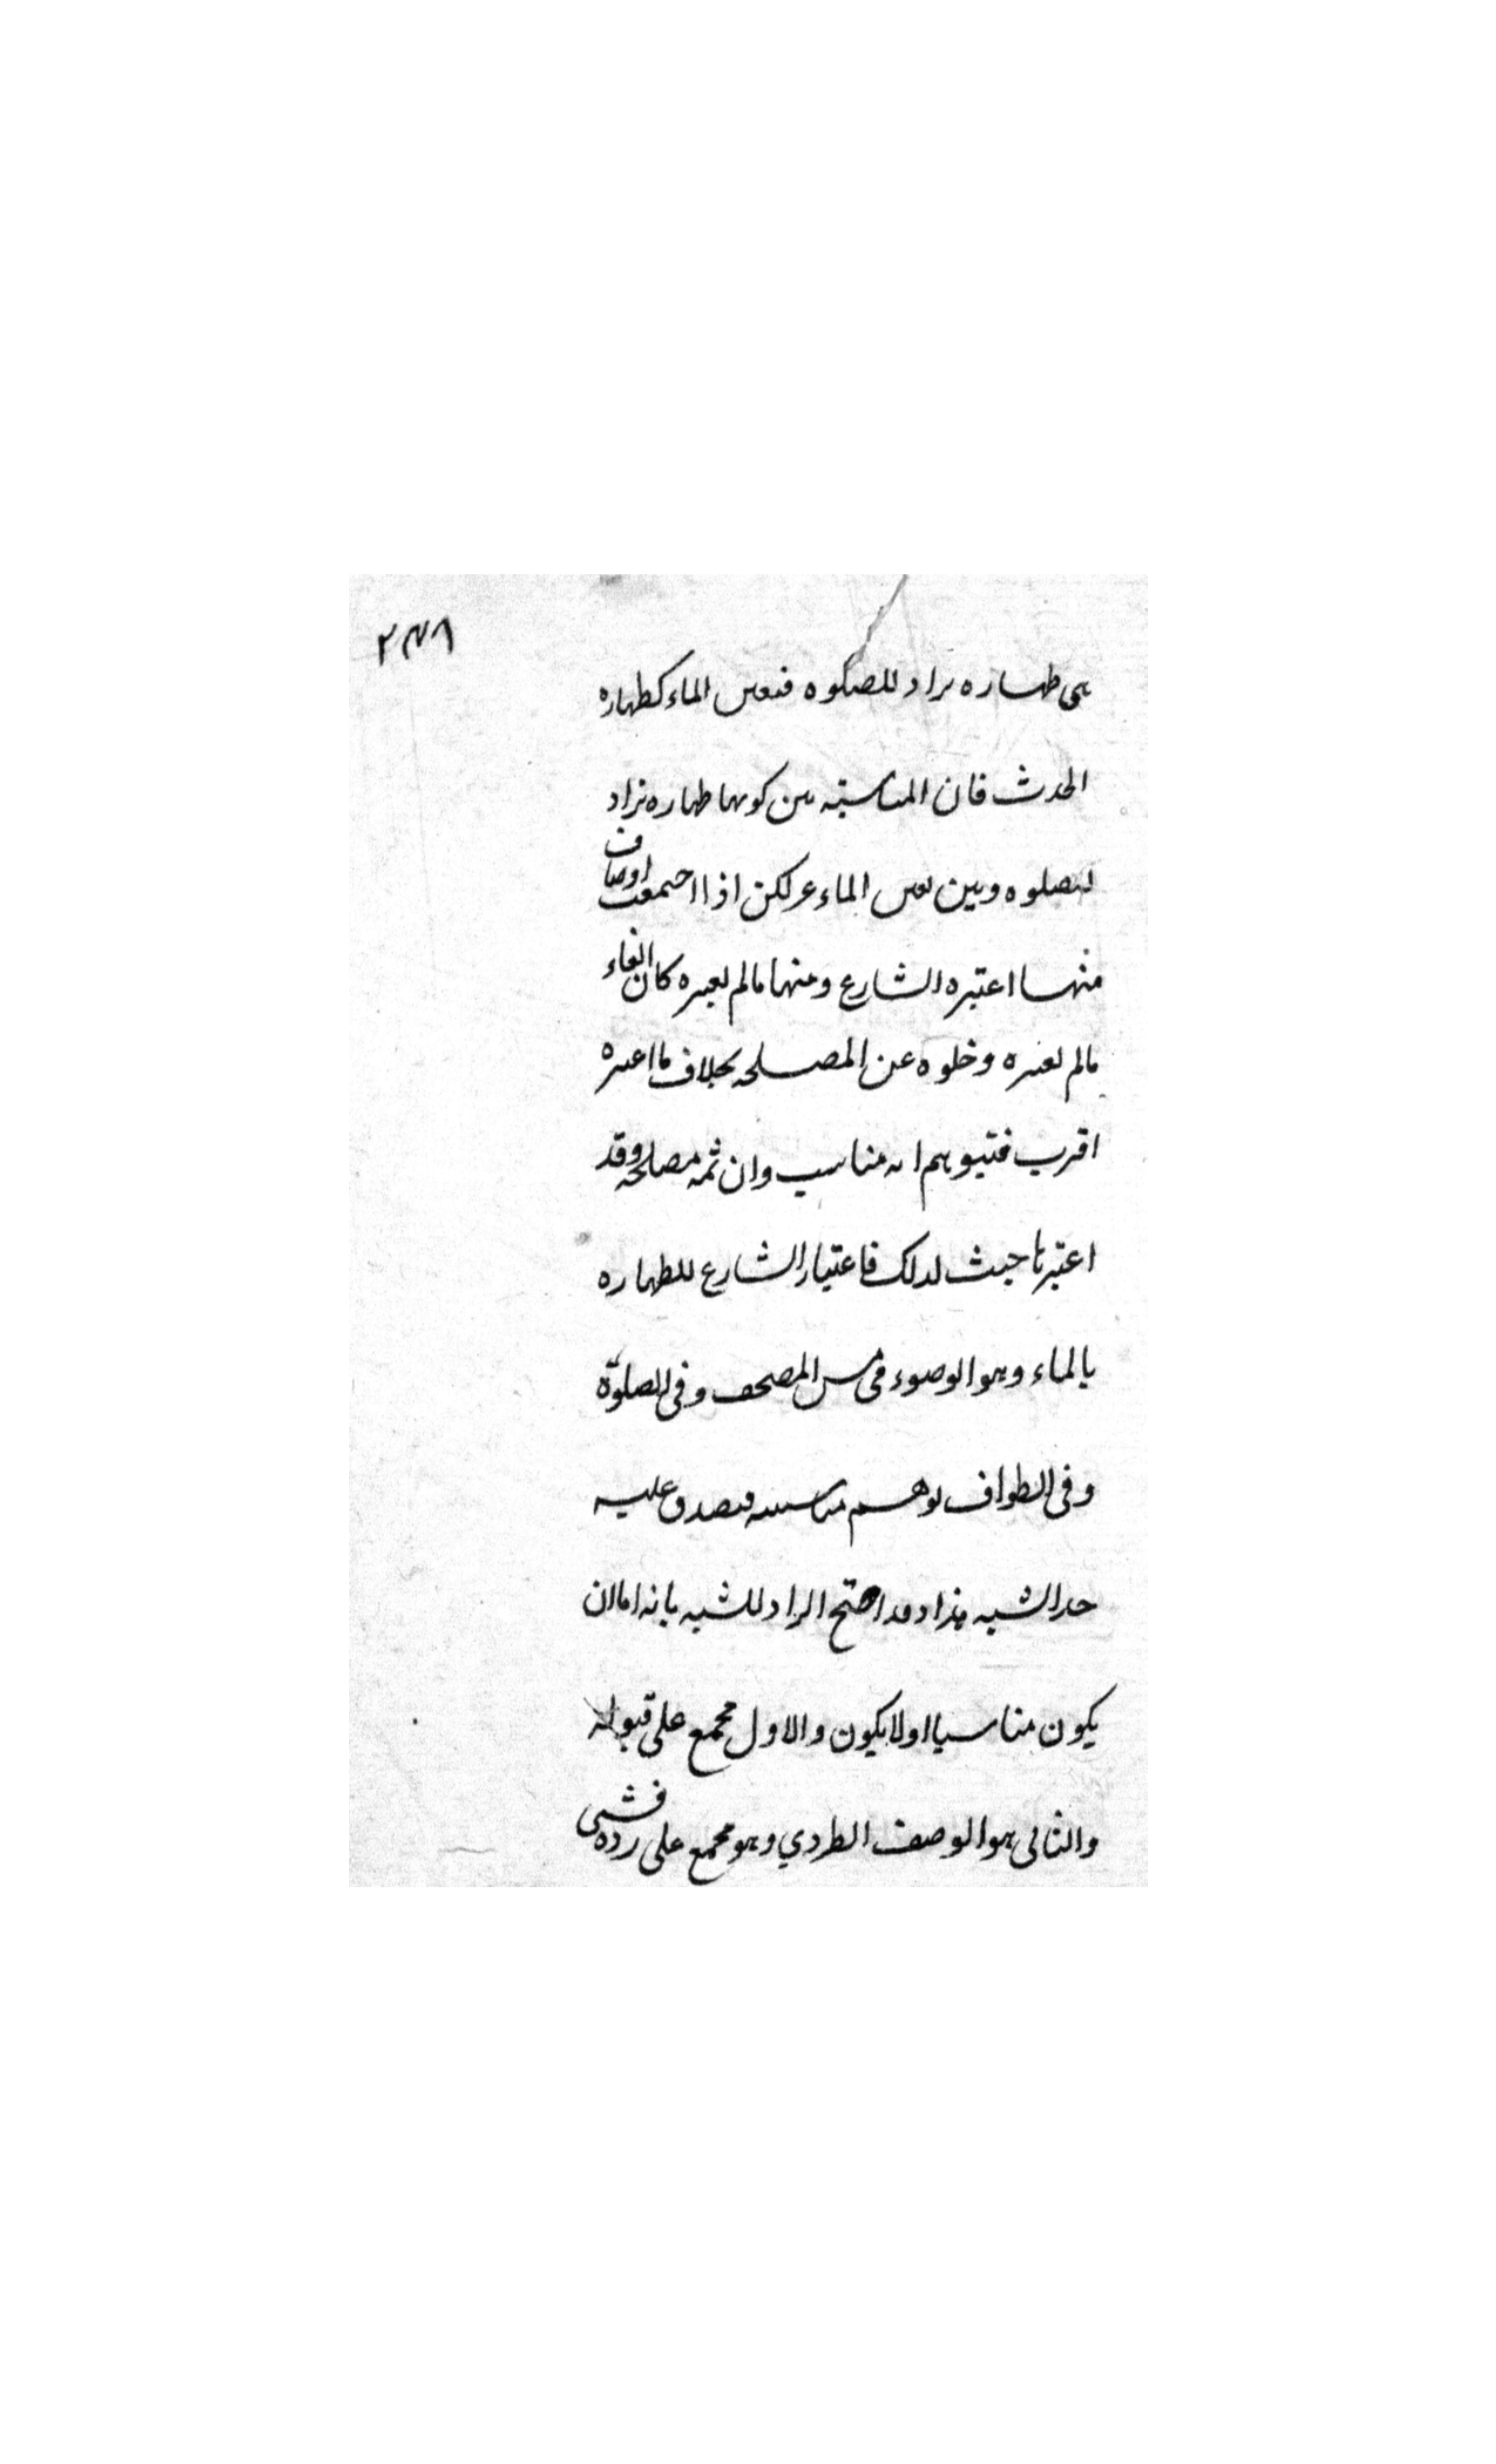 ٢٣٨
هي طهاره تراد للصلوه فتعين الماء كطهاره
الحدث فان المناسبه بين كونها طهاره تراد
للصلوه وبين تعين الماء غر لكن اذا اجتمعت اوصاف
منها اعتبره الشارع ومنها مالم يعتبره كان الغاء
مالم يعتبره وخلوه عن المصلحه بخلاف ما اعتبره
اقرب فتيوهم انه مناسب وان ثمه مصلحه وقد
اعتبرها حيث لذلك فاعتبار الشارع للطهاره
بالماء وهو الوضوء في مس المصحف وفي الصلوة
وفي الطواف يوهم مناسبته فيصدق عليه
حد الشبه هذا وقد احتج الراد للشبه بانه اما ان
يكون مناسبا اولا يكون والاول مجمع على قبوله
والثاني هو الوصف الطردي وهو مجمع على رده فشى